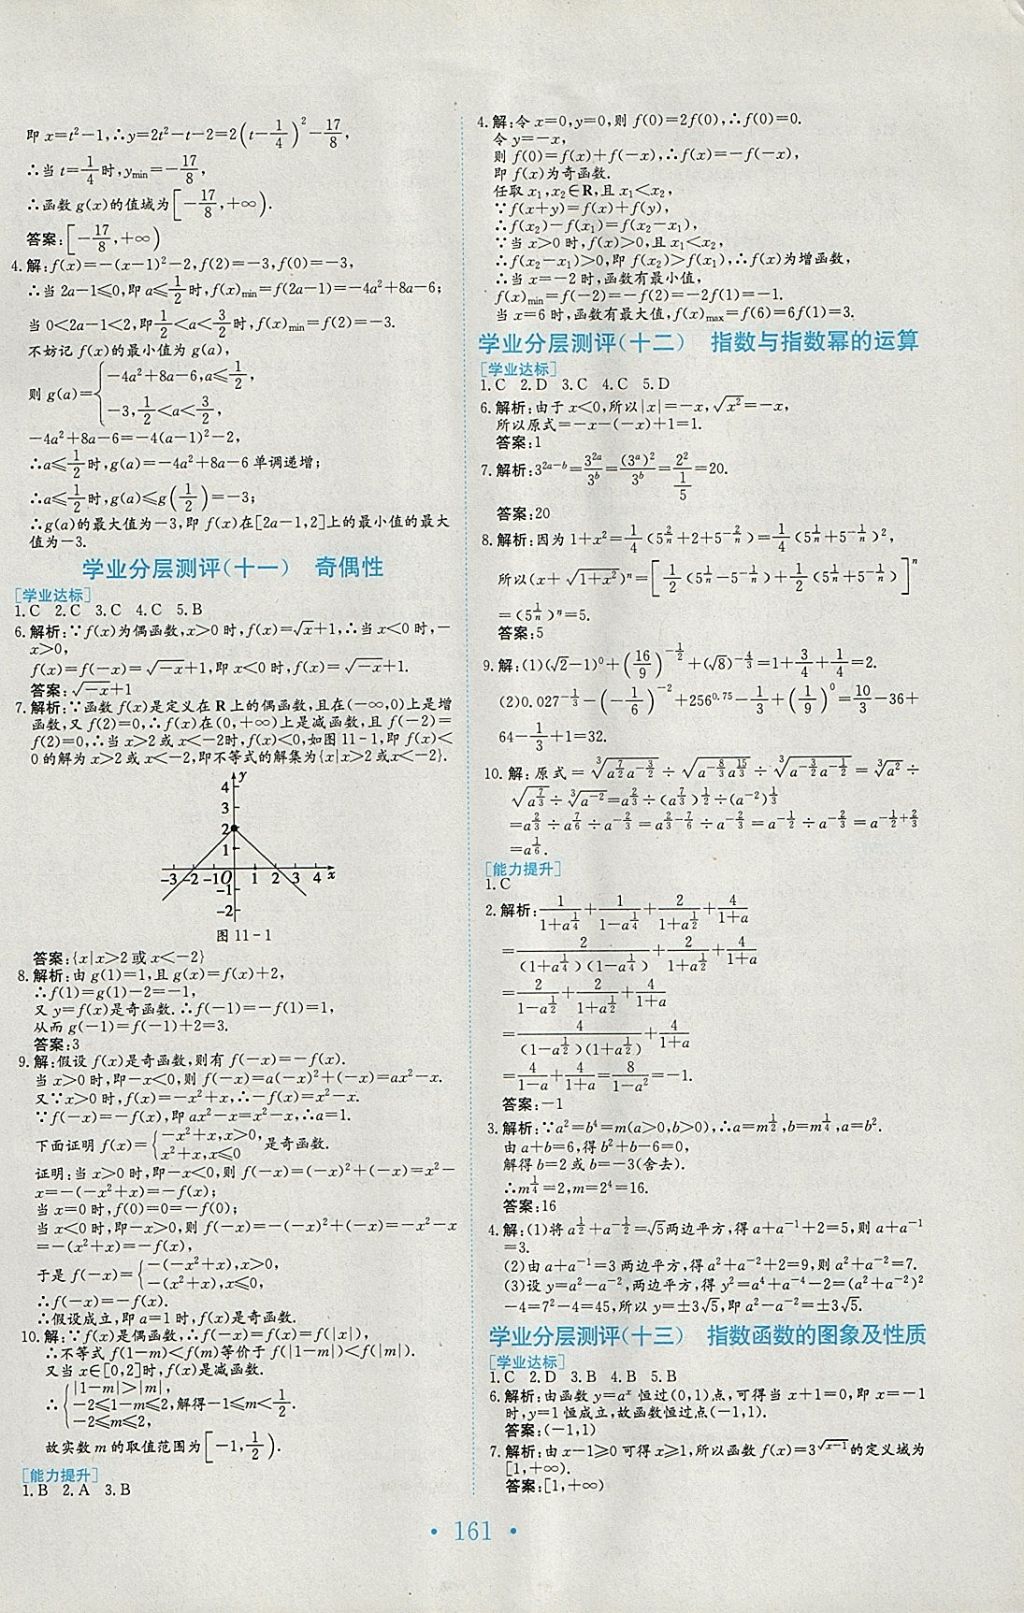 即 x=t²-1,∴y=2t²-t-2=2(t-1/4)²-17/8,
∴当 t=1/4 时,ymin=-17/8,
∴函数 g(x)的值域为[-17/8,+∞).
答案:[-17/8,+∞)
4.解:f(x)=-(x-1)²-2,f(2)=-3,f(0)=-3,
∴当 2a-1≤0,即 a≤1/2 时,f(x)min=f(2a-1)=-4a²+8a-6;
当 0<2a-1<2,即 1/2<a<3/2 时,f(x)min=f(2)=-3.
不妨记 f(x)的最小值为 g(a),
则 g(a)={-4a²+8a-6,a≤1/2,
-3,1/2<a<3/2,
-4a²+8a-6=-4(a-1)²-2,
∴a≤1/2 时,g(a)=-4a²+8a-6 单调递增;
∴a≤1/2 时,g(a)≤g(1/2)=-3;
∴g(a)的最大值为-3,即 f(x)在[2a-1,2]上的最小值的最大
值为-3.
学业分层测评(十一) 奇偶性
[学业达标]
1.C 2.C 3.C 4.C 5.B
6.解析:∵f(x)为偶函数,x>0 时,f(x)=√x+1,∴当 x<0 时,-
x>0,
f(x)=f(-x)=√-x+1,即 x<0 时,f(x)=√-x+1.
答案:√-x+1
7.解析:∵函数 f(x)是定义在 R 上的偶函数,且在(-∞,0)上是增
函数,又 f(2)=0,∴f(x)在(0,+∞)上是减函数,且 f(-2)=
f(2)=0,∴当 x>2 或 x<-2时,f(x)<0,如图 11-1,即 f(x)<
0 的解为 x>2 或 x<-2,即不等式的解集为{x|x>2 或 x<-2}.
y
4
3
2
1
-3 -2 -1 O 1 2 3 4 x
-1
-2
图 11-1
答案:{x|x>2 或 x<-2}
8.解析:由 g(1)=1,且 g(x)=f(x)+2,
∴f(1)=g(1)-2=-1,
又 y=f(x)是奇函数.∴f(-1)=-f(1)=1,
从而 g(-1)=f(-1)+2=3.
答案:3
9.解:假设 f(x)是奇函数,则有 f(-x)=-f(x).
当 x>0 时,即-x<0,则 f(-x)=a(-x)²+(-x)=ax²-x.
又∵x>0 时,f(x)=-x²+x,∴-f(x)=x²-x.
∵f(-x)=-f(x),即 ax²-x=x²-x,∴a=1.
下面证明 f(x)={-x²+x,x>0,
x²+x,x≤0 是奇函数.
证明:当 x>0 时,即-x<0,则 f(-x)=(-x)²+(-x)=x²-
x=-(-x²+x)=-f(x);
当 x=0 时,f(0)=0=-f(0);
当 x<0 时,即-x>0,则 f(-x)=-(-x)²+(-x)=-x²-x
=-(x²+x)=-f(x),
于是 f(-x)={-(-x²+x),x>0,
-(x²+x),x≤0.
∴f(-x)=-f(x).
∴假设成立,即 a=1 时,f(x)是奇函数.
10.解:∵f(x)是偶函数,∴f(-x)=f(x)=f(|x|),
∴不等式 f(1-m)<f(m)等价于 f(|1-m|)<f(|m|).
又当 x∈[0,2]时,f(x)是减函数.
∴{|1-m|>|m|,
-2≤1-m≤2,解得-1≤m<1/2.
-2≤m≤2,
故实数 m 的取值范围为[-1,1/2).
[能力提升]
1.B 2.A 3.B
4.解:令 x=0,y=0,则 f(0)=2f(0),∴f(0)=0.
令 y=-x,
则 f(0)=f(x)+f(-x),∴f(x)=-f(-x),
即 f(x)为奇函数.
任取 x₁,x₂∈R,且 x₁<x₂,
∵f(x+y)=f(x)+f(y),
∴f(x₂)-f(x₁)=f(x₂-x₁),
∵当 x>0 时,f(x)>0,且 x₁<x₂,
∴f(x₂-x₁)>0,即 f(x₂)>f(x₁),∴f(x)为增函数,
∴当 x=-2 时,函数有最小值,
f(x)min=f(-2)=-f(2)=-2f(1)=-1.
当 x=6 时,函数有最大值,f(x)max=f(6)=6f(1)=3.
学业分层测评(十二) 指数与指数幂的运算
[学业达标]
1.C 2.D 3.C 4.C 5.D
6.解析:由于 x<0,所以|x|=-x,√x²=-x,
所以原式=-x-(-x)+1=1.
答案:1
7.解析:3^(2a-b)=3^(2a)/3^b=(3^a)²/3^b=2²/(1/5)=20.
答案:20
8.解析:因为 1+x²=1/4(5^(2/n)+2+5^(-2/n))=1/4(5^(1/n)+5^(-1/n))²,
所以(x+√(1+x²))^n=[1/2(5^(1/n)-5^(-1/n))+1/2(5^(1/n)+5^(-1/n))]^n
=(5^(1/n))^n=5.
答案:5
9.解:(1)(√2-1)⁰+(16/9)^(-1/2)+(√8)^(-4/3)=1+3/4+1/4=2.
(2)0.027^(-1/3)-(-1/6)^(-2)+256^0.75-1/3+(1/9)⁰=10/3-36+
64-1/3+1=32.
10.解:原式=∛(a^(7/2)a^(-3/2))÷√(a^(-8/3)a^(15/3))÷∛(a^(-3/2)a^(-1/2))=∛a²÷
√(a^(7/3))÷∛(a^(-2))=a^(2/3)÷(a^(7/3))^(1/2)÷(a^(-2))^(1/3)
=a^(2/3)÷a^(7/6)÷a^(-2/3)=a^(2/3-7/6)÷a^(-2/3)=a^(-1/2)÷a^(-2/3)=a^(-1/2+2/3)
=a^(1/6).
[能力提升]
1.C
2.解析:1/(1+a^(1/4))+1/(1-a^(1/4))+2/(1+a^(1/2))+4/(1+a)
=2/((1+a^(1/4))(1-a^(1/4)))+2/(1+a^(1/2))+4/(1+a)
=2/(1-a^(1/2))+2/(1+a^(1/2))+4/(1+a)
=4/((1-a^(1/2))(1+a^(1/2)))+4/(1+a)
=4/(1-a)+4/(1+a)=8/(1-a²)=-1.
答案:-1
3.解析:∵a²=b⁴=m(a>0,b>0),∴a=m^(1/2),b=m^(1/4),a=b².
由 a+b=6,得 b²+b-6=0,
解得 b=2 或 b=-3(舍去).
∴m^(1/4)=2,m=2⁴=16.
答案:16
4.解:(1)将 a^(1/2)+a^(-1/2)=√5两边平方,得 a+a⁻¹+2=5,则 a+a⁻¹
=3.
(2)由 a+a⁻¹=3 两边平方,得 a²+a⁻²+2=9,则 a²+a⁻²=7.
(3)设 y=a²-a⁻²,两边平方,得 y²=a⁴+a⁻⁴-2=(a²+a⁻²)²
-4=7²-4=45,所以 y=±3√5,即 a²-a⁻²=±3√5.
学业分层测评(十三) 指数函数的图象及性质
[学业达标]
1.C 2.D 3.B 4.B 5.B
6.解析:由函数 y=a^x 恒过(0,1)点,可得当 x+1=0,即 x=-1
时,y=1 恒成立,故函数恒过点(-1,1).
答案:(-1,1)
7.解析:由 x-1≥0 可得 x≥1,所以函数 f(x)=3^√(x-1) 的定义域为
[1,+∞).
答案:[1,+∞)
• 161 •